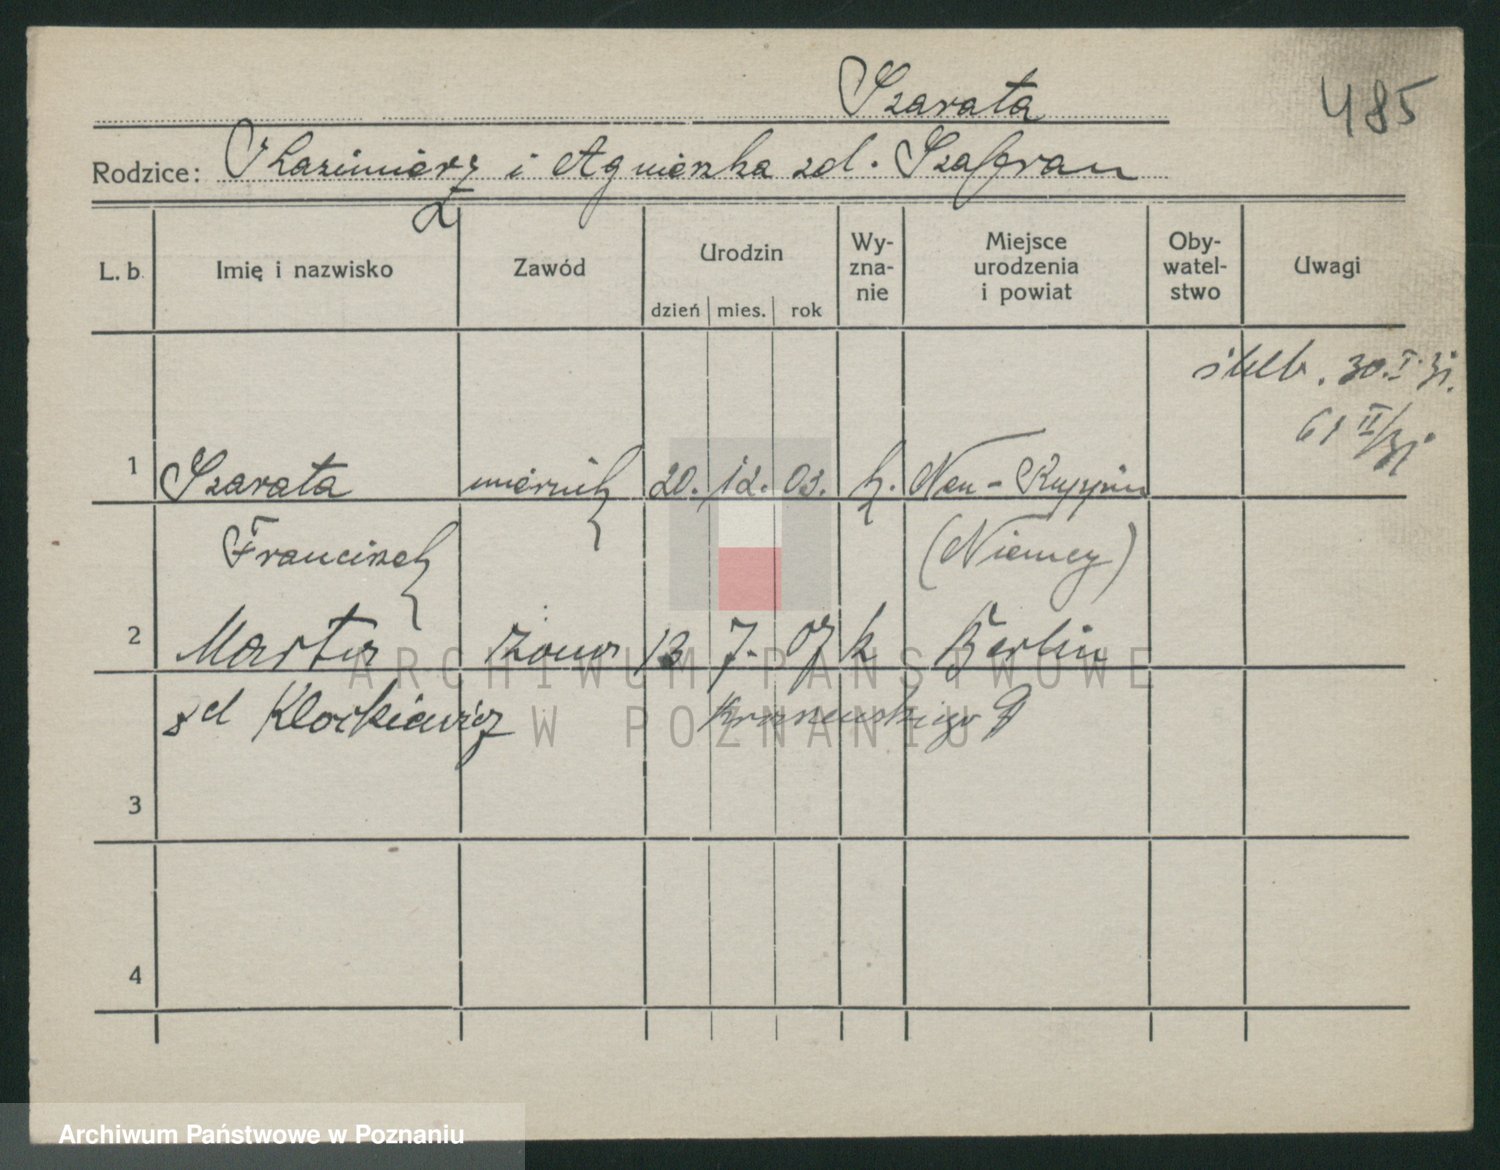 Szarata
485
Rodzice: Kazimierz i Agnieszka zd. Szafran
L. b. Imię i nazwisko Zawód Urodzin dzień mies. rok Wyzna-nie Miejsce urodzenia i powiat Oby-watel-stwo Uwagi
ślub. 30.I.31.
61 II/31
1 Szarata miernik 20. 12. 03. k. Neu-Ruppin
Franciszek (Niemcy)
2 Marta żona 13 7. 07 k Berlin
zd Klorkiewicz Kraszewskiego 9
3
4
ARCHIWUM PAŃSTWOWE
W POZNANIU
Archiwum Państwowe w Poznaniu